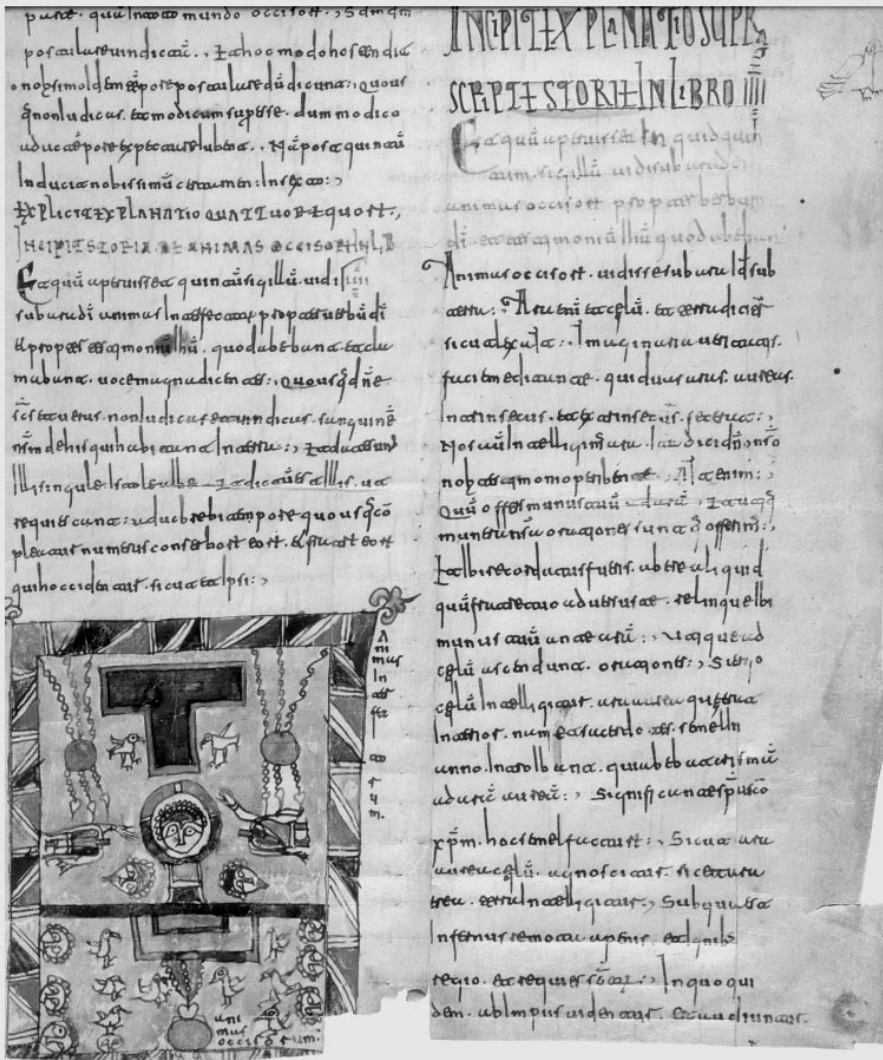 mundo
postulare vindictā. Et hoc modo hos e
nobissimo idem tēpore postulare dū dicunt: Quous
q̄ non iudicas. et modicum superesse. dum modico
adhuc tēpore expectare iubent. Nā post quintū
In dicta nobissimū certamen: In sexto:
EXPLICIT EXPLANATIO QUATTUOR EQUORŪ.
INCIPIT STORIA DE ANIMAS OCCISORŪ IN LB
Et quū aperuisset quintū sigillū. vidi IIII
sub ara dī animas Interfectorū propter verbū dī
Et propter testimoniū Ihū. quod abebant. et cla
mabant. voce magna dicentes: Quousq̄ dn̄e
sc̄s et verus. non iudicas et vindicas. sanguinē
nr̄m de his qui habitant In terra: Et date sunt
Illis singule stole albe. Et dictū est Illis. ut
requiescant: adhuc brebi tempore quousq̄ cō
pleatur numerus conserborū eorū. Et fratrū eorū
qui occidentur. sicut et Ipsi:
Animas Interfectorum.
animas occisorum.
INCIPIT EXPLANATIO SUPRA
SCRIPTE STORIE IN LIBRO IIII
Et quū aperuisset In quid quin
tum. sigillū vidi sub ara dei
animas occisorū propter berbum
dī. et testimoniū Ihū quod abebant
Animas occisorū. vidisse sub ara dī sub
terra: Ara enī et celū. et terra dicitur
sicut exta: Imaginaria utrasq.
facit mediante. qui duas aras. aureas.
Intrinsecus. et extrinsecus. fecerat:
Hos aū Intelligim̄ ara. dn̄o nr̄o
nobis testimonio perhibente. Ait enim:
Quū offers munus tuū ad arā. Et utiq̄
munera nr̄a orationes sunt q̄ offerim̄:
Et Ibi recordatus fueris. ab te aliquid
quū frater tuo adversus te. relinque Ibi
munus tuū ante arā: Utique ad
celū ascendunt. orationes: S
celū Intelligitur. ara aurea que erat
Interior. nam et sacerdos semel In
anno. Introibunt. qui abebant crismū
ad arā aureā: Significante sp̄u sc̄o
xp̄m. hoc semel facturū: Sicut ara
aurea celū. agnoscitur. sic et ara
erea. terra Intelligitur: Sub qua est
Infernus remota a penis. et Ignibus
regio. et requies sc̄orum: In quo qui
dem. ab Impiis videntur. et audiuntur.